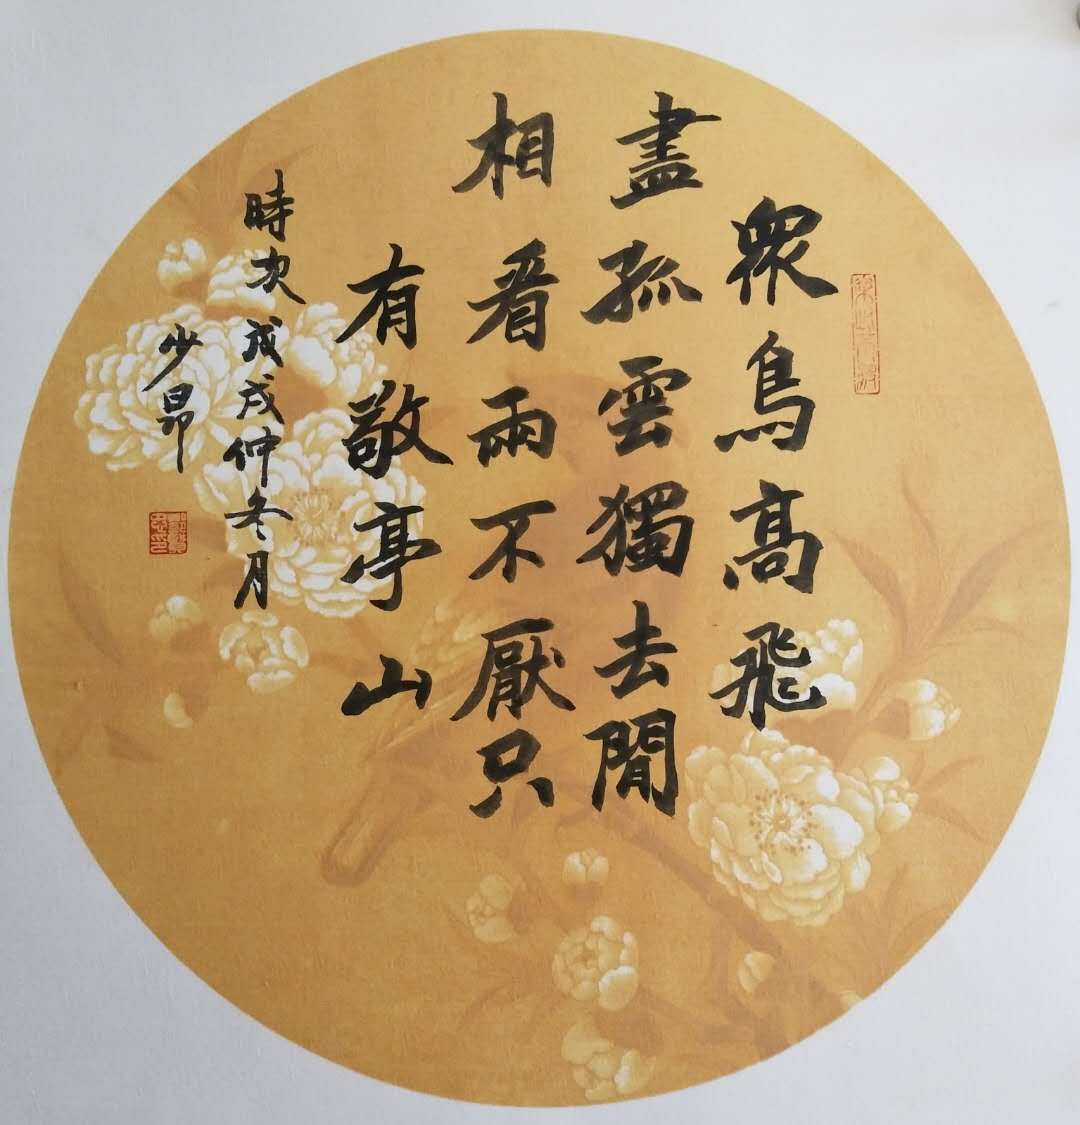 衆鳥高飛
盡孤雲獨去閒
相看兩不厭只
有敬亭山
時次戊戌仲冬月
少昂